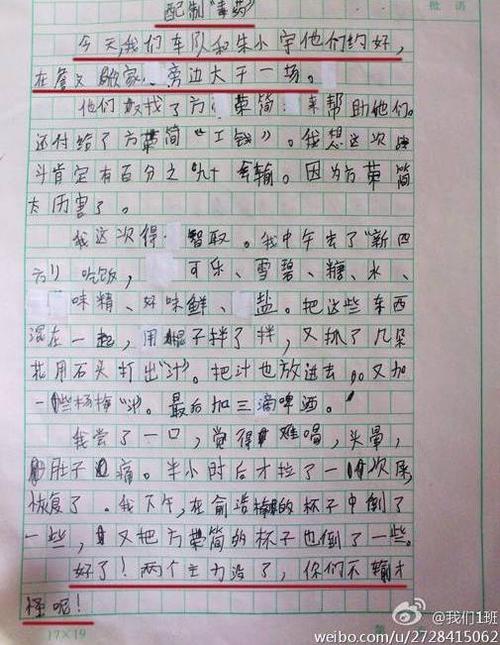 批语
配制“毒药”
今天,我们车队和朱小宇他们约好,
在詹文歌家旁边大干一场。
他们奴找了方荣简来帮助他们。
还付给了方荣简“工钱”。我想这次战
斗肯定有百分之九十会输。因为方荣简
太历害了。
我这次得智取。我中午去了“新四
方”吃饭,可乐、雪碧、糖、水、
味精、好味鲜、盐。把这些东西
混在一起,用棍子拌了拌,又抓了几朵
花用石头打出“汁”。把汁也放进去,又加
一些杨梅“汁”。最后加三滴啤酒。
我尝了一口,觉得难喝,头晕,
肚子痛。半小时后才拉了一次尿
恢复了。我下午,在俞浩的杯子中倒了
一些,又把方荣简的杯子也倒了一些。
好了!两个主力没了,你们不输才
怪呢!
17×19
@我们1班
weibo.com/u/2728415062